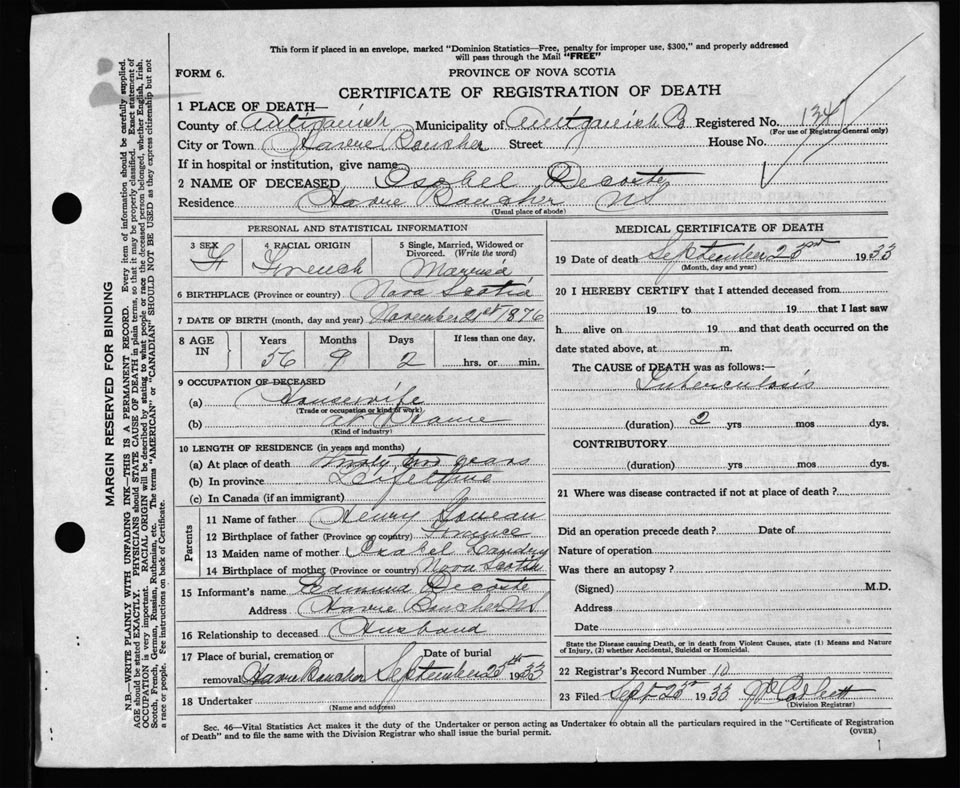 This form if placed in an envelope, marked "Dominion Statistics—Free, penalty for improper use, $300," and properly addressed
will pass through the Mail "FREE"
FORM 6.
PROVINCE OF NOVA SCOTIA
CERTIFICATE OF REGISTRATION OF DEATH
1 PLACE OF DEATH—
County of Antigonish Municipality of Antigonish Co Registered No. 1347
(For use of Registrar General only)
City or Town Havre Boucher Street House No.
If in hospital or institution, give name
2 NAME OF DECEASED Isobel Decoste
Residence Havre Boucher NS
(Usual place of abode)
PERSONAL AND STATISTICAL INFORMATION
3 SEX F
4 RACIAL ORIGIN French
5 Single, Married, Widowed or Divorced. (Write the word) Married
6 BIRTHPLACE (Province or country) Nova Scotia
7 DATE OF BIRTH (month, day and year) November 21st 1876
8 AGE IN Years Months Days If less than one day,
56 9 2 hrs. or min.
9 OCCUPATION OF DECEASED
(a) Housewife
(Trade or occupation or kind of work)
(b) at Home
(Kind of industry)
10 LENGTH OF RESIDENCE (in years and months)
(a) At place of death two years
(b) In province Lifetime
(c) In Canada (if an immigrant)
Parents
11 Name of father Henry
12 Birthplace of father (Province or country) France
13 Maiden name of mother Isabel Landry
14 Birthplace of mother (Province or country) Nova Scotia
15 Informant's name Edmund Decoste
Address Havre Boucher NS
16 Relationship to deceased Husband
17 Place of burial, cremation or removal Date of burial
Havre Boucher September 25th 1933
18 Undertaker
(Name and address)
MEDICAL CERTIFICATE OF DEATH
19 Date of death September 23rd 1933
(Month, day and year)
20 I HEREBY CERTIFY that I attended deceased from
19 to 19 that I last saw
h alive on 19 and that death occurred on the
date stated above, at m.
The CAUSE of DEATH was as follows:—
Tuberculosis
(duration) 2 yrs mos dys.
CONTRIBUTORY
(duration) yrs mos dys.
21 Where was disease contracted if not at place of death?
Did an operation precede death? Date of
Nature of operation
Was there an autopsy?
(Signed) M.D.
Address
Date
State the Disease causing Death, or in death from Violent Causes, state (1) Means and Nature
of Injury, (2) whether Accidental, Suicidal or Homicidal.
22 Registrar's Record Number 10
23 Filed Sept 23rd 1933 Corbett
(Division Registrar)
Sec. 46—Vital Statistics Act makes it the duty of the Undertaker or person acting as Undertaker to obtain all the particulars required in the "Certificate of Registration
of Death" and to file the same with the Division Registrar who shall issue the burial permit.
(OVER)
1
MARGIN RESERVED FOR BINDING
N.B.—WRITE PLAINLY WITH UNFADING INK—THIS IS A PERMANENT RECORD. Every item of information should be carefully supplied.
AGE should be stated EXACTLY. PHYSICIANS should STATE CAUSE OF DEATH in plain terms, so that it may be properly classified. Exact statement of
OCCUPATION is very important. RACIAL ORIGIN will be described by stating to what people or race the deceased person belonged, whether English, Irish,
Scotch, French, German, Russian, Ruthenian, etc. The terms "AMERICAN" or "CANADIAN" SHOULD NOT BE USED as they express citizenship but not
a race or people. Fee instructions on back of Certificate.